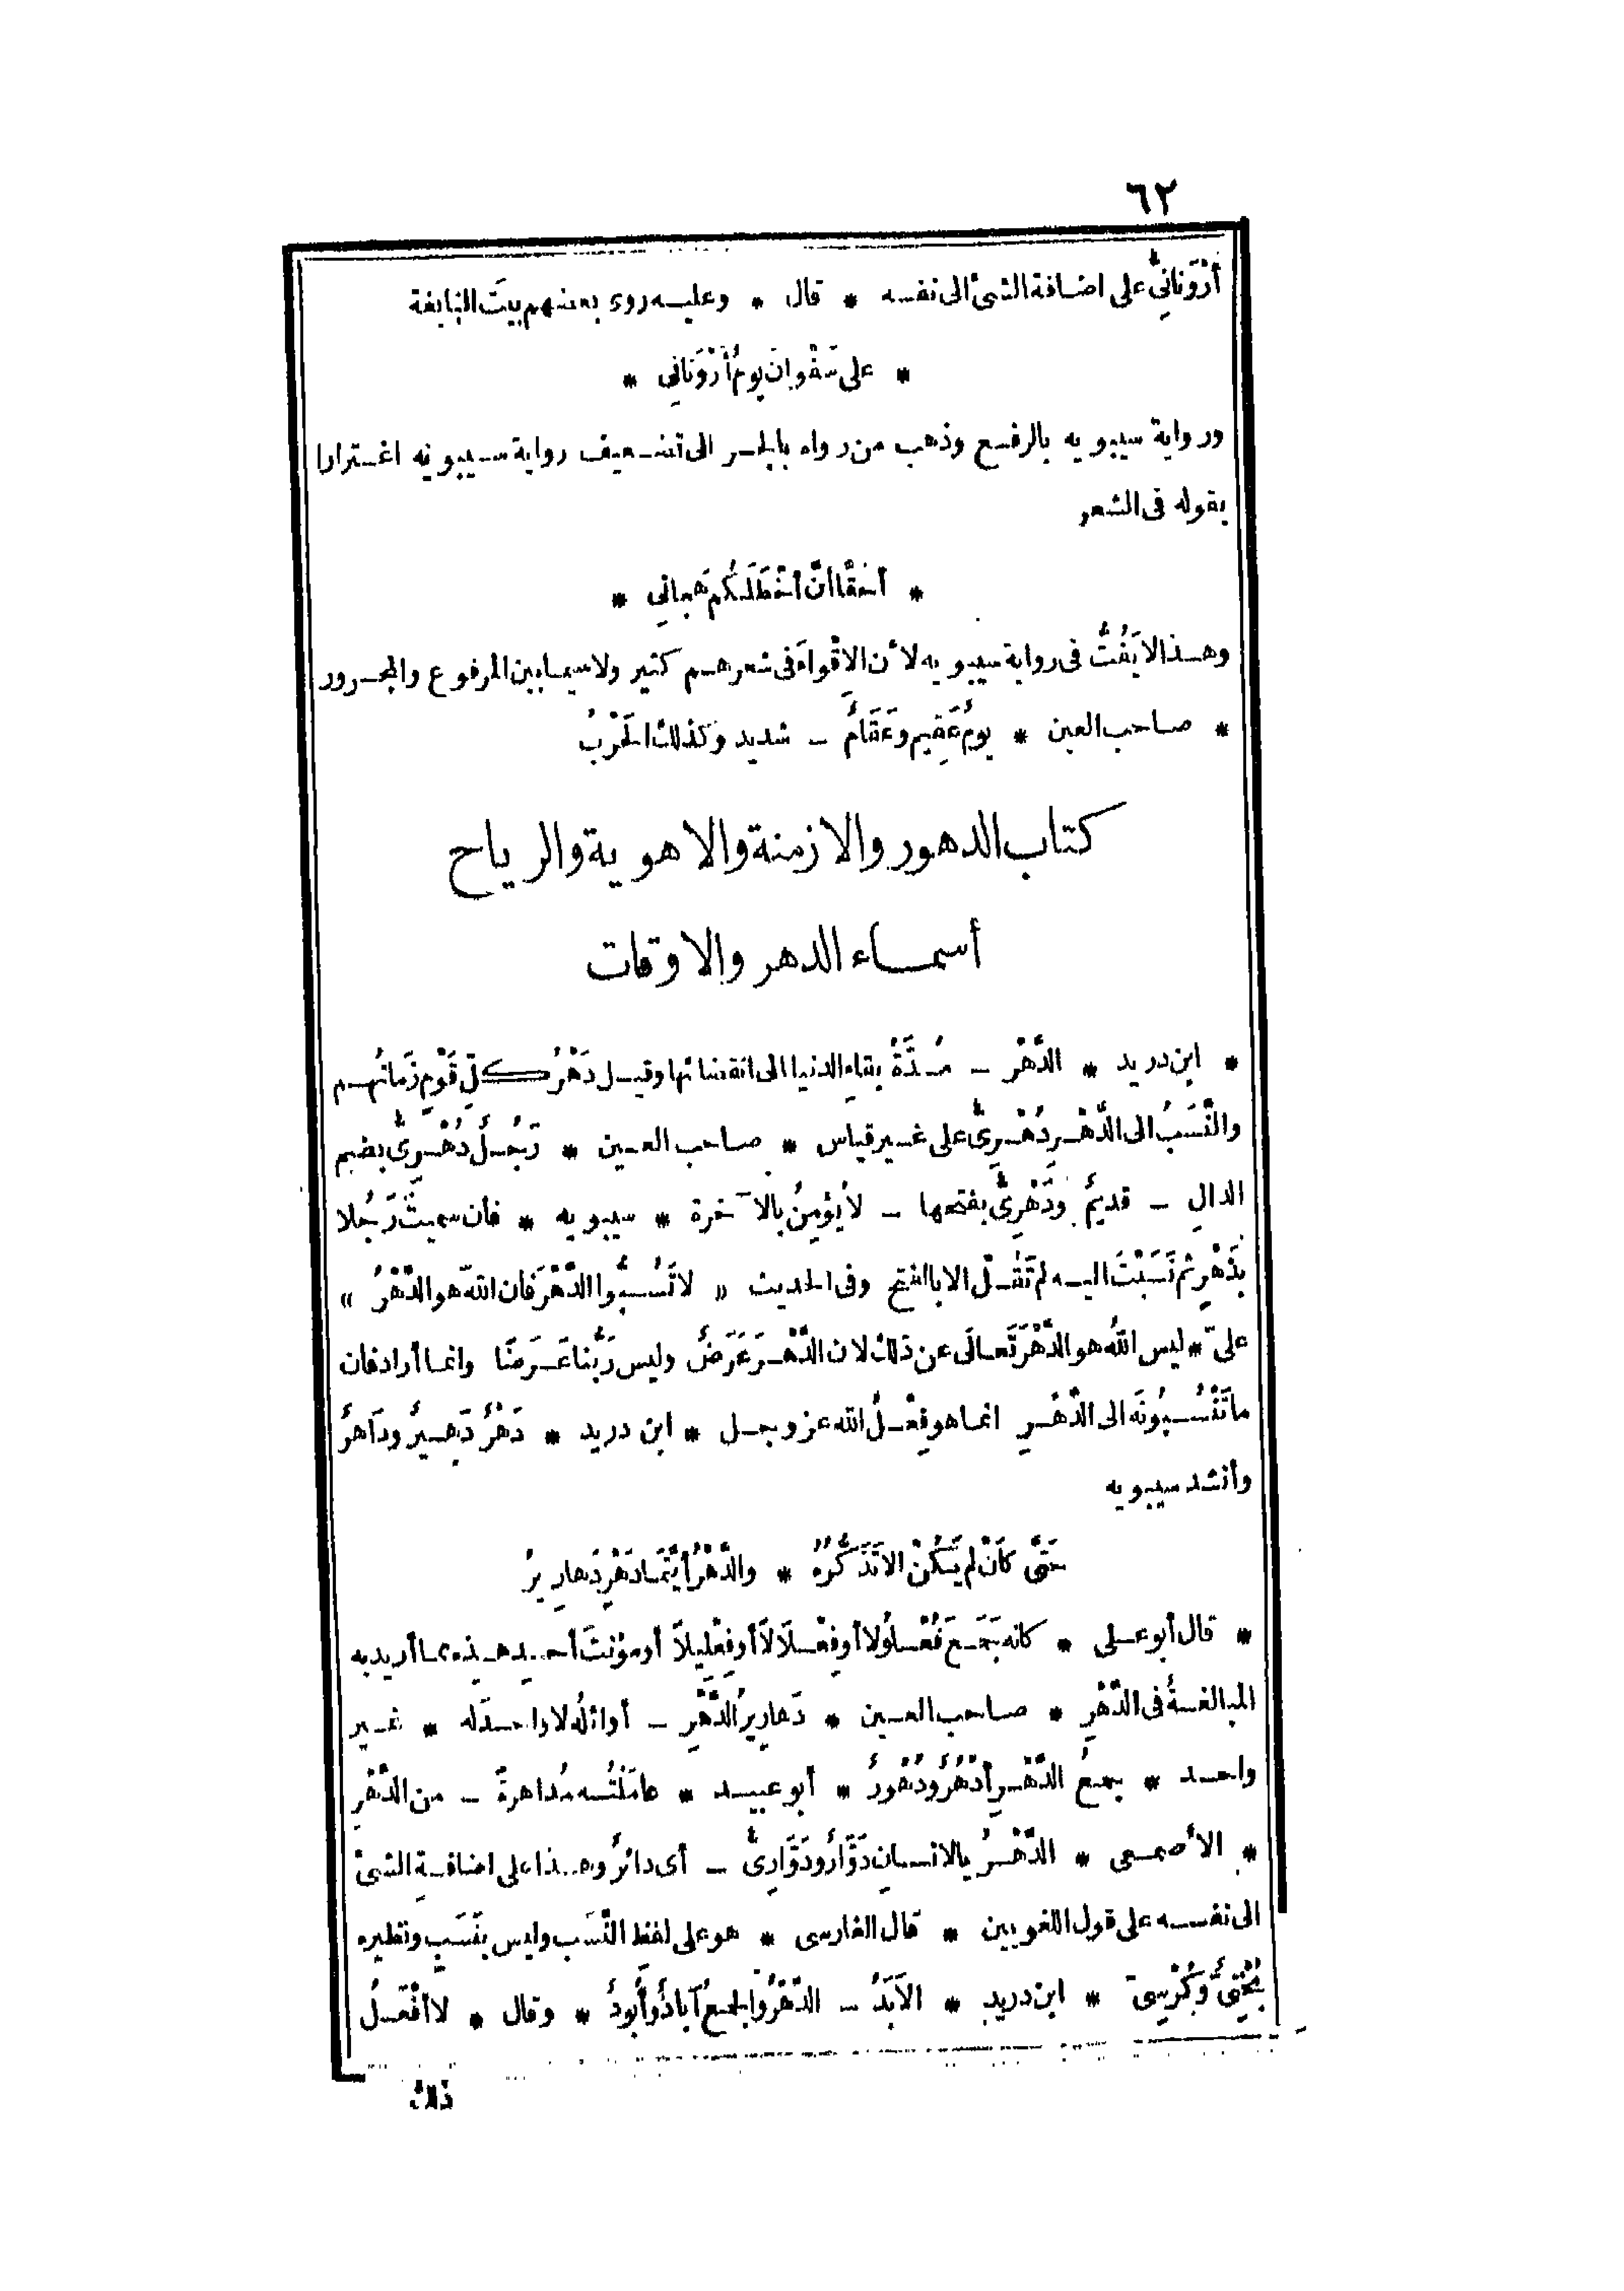 ٦٢
أَرْوَنانِىٌّ على اضافة الشئ الى نفسه * قال * وعليه روى بعضهم بيتَ النابغة
* على سَفَوانَ يومُ أَرْوَنانِى *
ورواية سيبويه بالرفع وذهب من رواه بالجر الى تضعيف رواية سيبويه اغترارا
بقوله فى الشعر
* أحَقًّا أنَّ أخْطَلَكُم هَجانِى *
وهذا لا يَفُتُّ فى رواية سيبويه لأن الاقْواءَ فى شعرهم كثير ولا سيما بين المرفوع والمجرور
* صاحب العين * يومٌ عَقِيم وعَقَامٌ - شديد وكذلك الحَرْبُ
كتاب الدهور والازمنة والاهوية والرياح
أسماء الدهر والاوقات
* ابن دريد * الدَّهْر - مُدَّةُ بقاءِ الدنيا الى انقضائها وقيل دَهْرُ كلِّ قَوْمٍ زَمانُهم
والنَّسَبُ الى الدَّهْرِ دُهْرِىٌّ على غير قياس * صاحب العين * رَجُلٌ دُهْرِىٌّ بضم
الدالِ - قديمٌ ودَهْرِىٌّ بفتحها - لا يُؤمِنُ بالآخرة * سيبويه * فان سميتَ رَجُلا
بدَهْرٍ ثم نَسَبْتَ اليه لم تَقُل الا بالفتح وفى الحديث « لا تَسُبُّوا الدَّهْرَ فان اللهَ هو الدَّهْرُ »
علىّ * ليس اللهُ هو الدَّهْرَ تَعالَى عن ذلك لان الدَّهْرَ عَرَضٌ وليس رَبُّنا عَرَضًا وانما أراد فان
ما تَنْسُبُونَه الى الدَّهْرِ انما هو فِعْلُ الله عز وجل * ابن دريد * دَهْرٌ دَهِيرٌ ودَاهرٌ
وأنشد سيبويه
حَتَّى كأنْ لم يَكُنْ الا تَذَكُّرُهُ * والدَّهْرُ أيَّتَمَا دَهْرٍ دَهارِيرُ
* قال أبو على * كانه جَمَعَ فُعْلُولا أو فِعْلَالًا أو فِعْلِيلًا أو مؤنثَ أحدِ هذه مما أريد به
المبالغةُ فى الدَّهْرِ * صاحب العين * دَهارِيرُ الدَّهْرِ - أوائلُه لا واحدَ له * غير
واحد * جمعُ الدَّهْرِ أدْهُرٌ ودُهُورٌ * أبو عبيد * عامَلْتُه مُداهرةً - من الدَّهْرِ
* الأصمعى * الدَّهْرُ بالانسانِ دَوَّارٌ ودَوَّارِىٌّ - أى دائرٌ وهذا على اضافةِ الشئ
الى نفسه على قول اللغويين * قال الفارسى * هو على لفظ النَّسَب وليس بنَسَبٍ ونظيره
بُخْتِىٌّ وكُرْسِىّ * ابن دريد * الاَبَدُ - الدَّهْرُ والجمعُ آبادٌ وأُبُودٌ * وقال * لا أفْعَلُ
ذلك